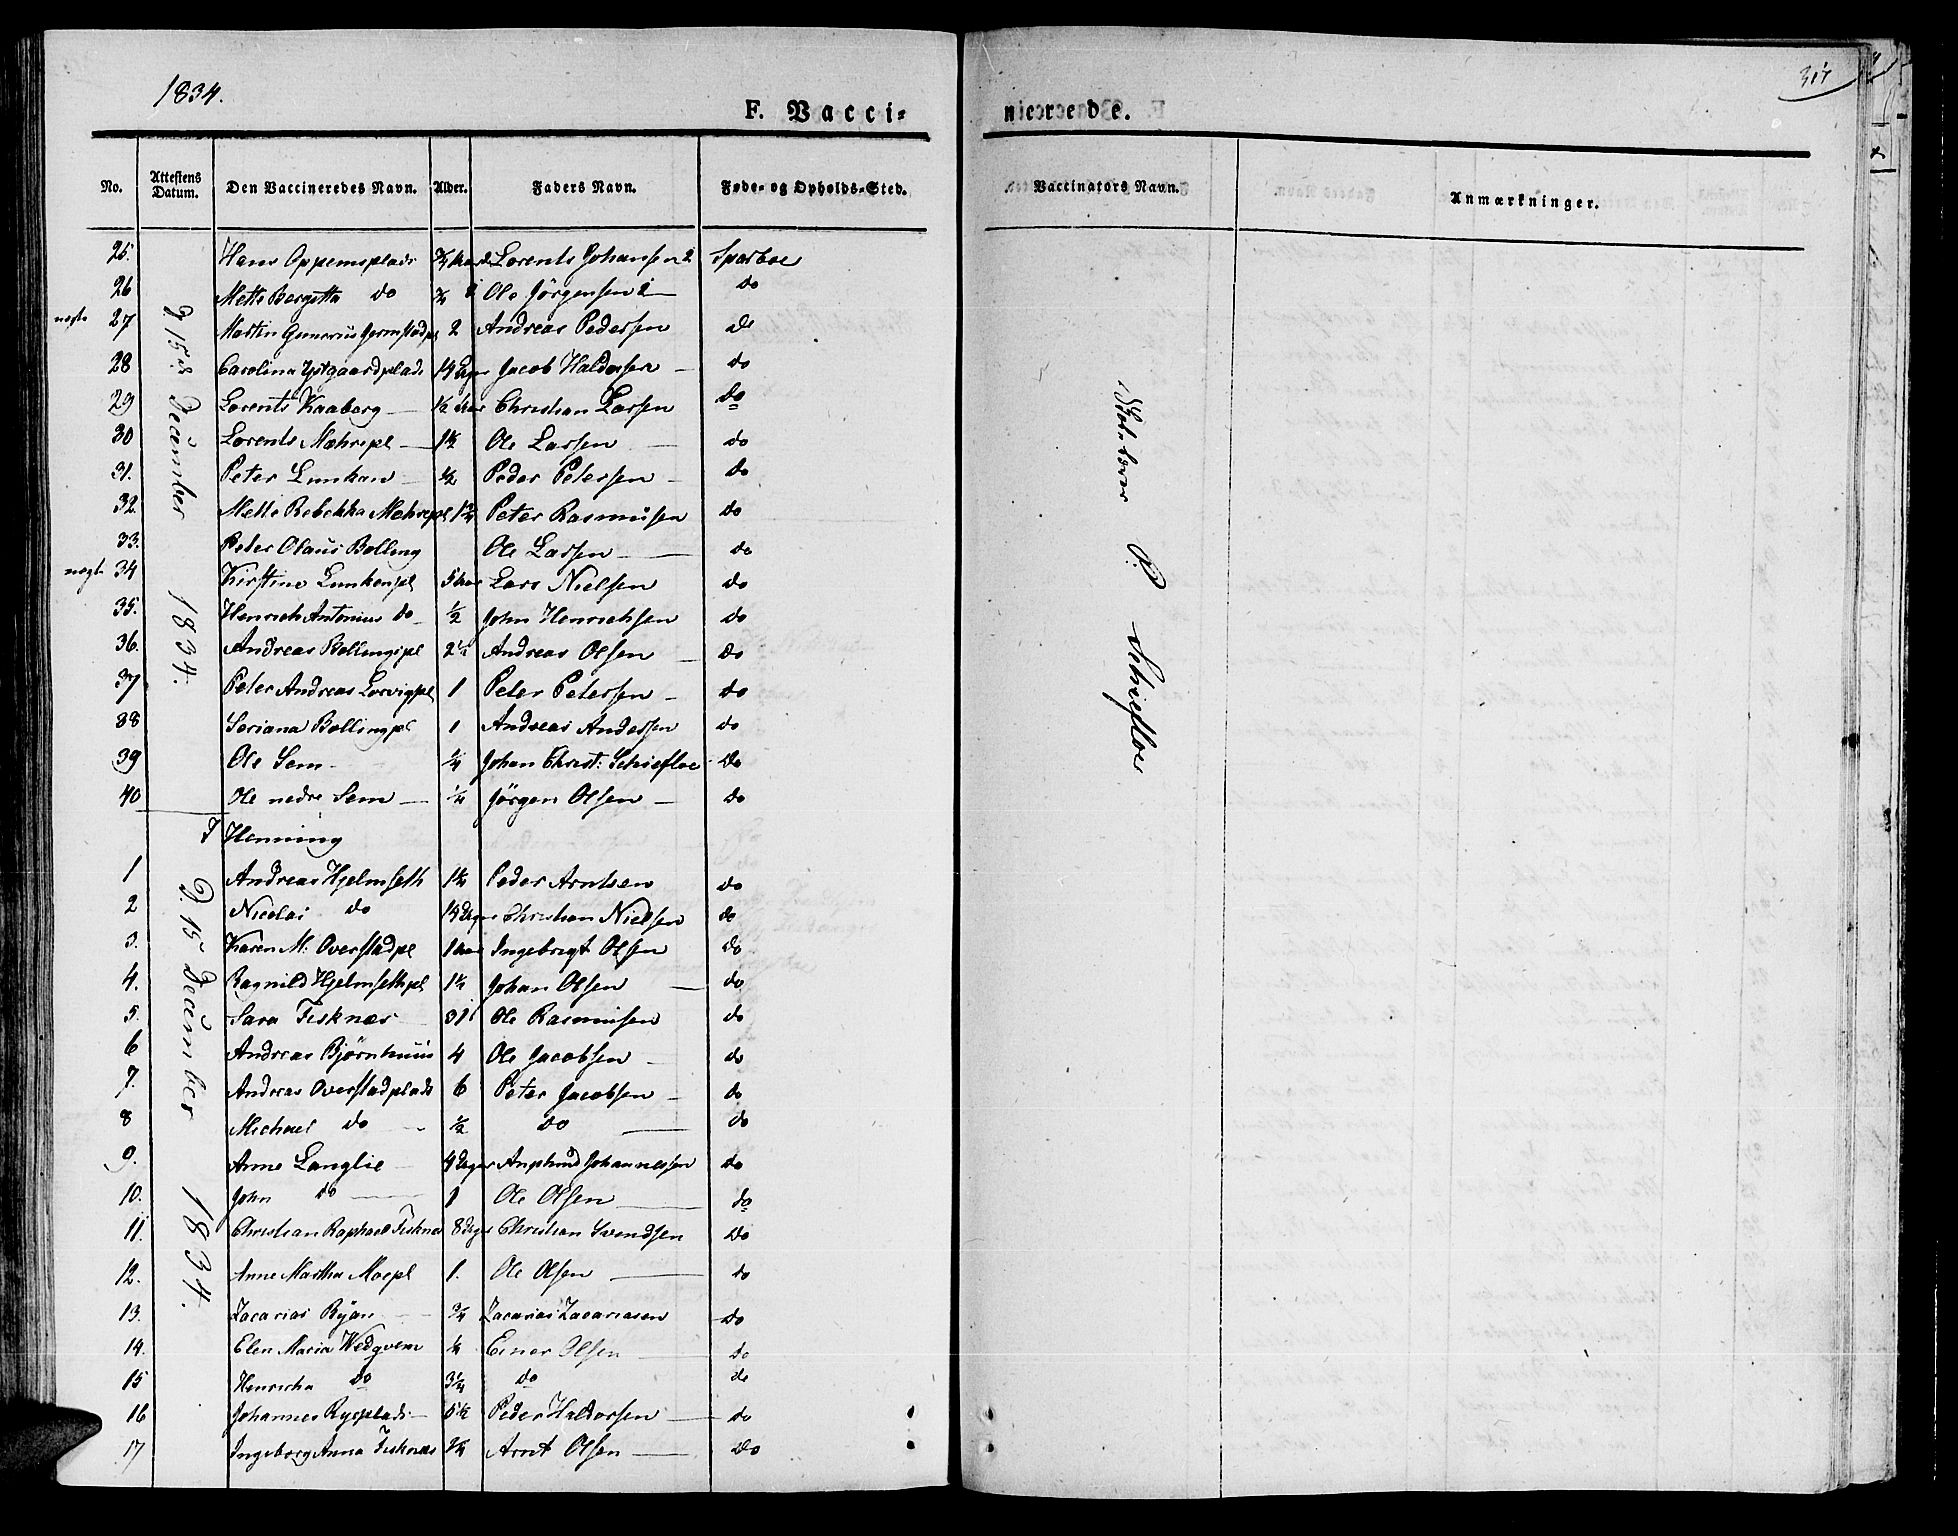 1834.
F. Vacci-
nieroende.
317
No.
Attestens Datum.
Den Vaccineredes Navn.
Alder.
Faders Navn.
Føde- og Opholds-Sted.
Vaccinators Navn.
Anmærkninger.
D 15de December 1834.
25. Hans Oppemsplads 3/4 Aar Lorents Johansen Sparboe
26 Mette Bergetta do 3/4 Ole Jörgensen do
27 Martin Gunerius 2 Andreas Pedersen do
28 Carolina Ystgaardplads 14 Dage Jacob Haldorsen do
29 Lorents Kaaberg 1/2 Aar Christian Larsen do
30 Lorents Mæhrepl 1 1/2 Ole Larsen do
31. Peter Lunkan 1/2 Peder Petersen do
32. Mette Rebekka Mæhrepl 1 3/4 Peter Rasmusen do
33. Peter Olaus Bolling Ole Larsen do
34 Kirstine Lunkanpl 5 Aar Lars Nielsen do
35. Henrich Antonius do 1/2 John Henrichsen do
36. Andreas Bollingpl 2 1/2 Andreas Olsen do
37 Peter Andreas Lorvigpl 1 Peter Petersen do
38 Seriana Bollingpl 1 Andreas Andersen do
39 Ole Sem 1/4 Johan Christ: Schiefloe do
40 Ole nedre Sem 1/4 Jörgen Olsen do
I Henning
D. 15 December 1834.
1 Andreas Hjelmseth 1 1/2 Peder Arntsen do
2 Nicolai do 14 Dage Christian Nielsen do
3. Karen M. Overstadpl 1 Aar Ingebrigt Olsen do
4. Ragnild Hjelmsethpl 1 1/4 Johan Olsen do
5. Sara Fisknæs Ole Rasmusen do
6 Andreas Björnhuus 4 Ole Jacobsen do
7. Andreas Overstadplads 6 Peter Jacobsen do
8 Michael do 1/2 do do
9. Anne Langlie Johannessen do
10. John do 1 Ole Olsen do
11. Christian Raphael Fisknæs 8 Dage Christian Svendsen do
12. Anne Martha Moepl 1. Ole Olsen do
13. Zacarias Ryan 3/4 Zacarias Zacariasen do
14. Elen Maria Wedgvem Einer Olsen do
15 Henricha do 3 1/4 do do
16 Johannes Rygplads 5 1/2 Peder Haldorsen do
17 Ingeborg Anna Fisknæs 2 1/4 Arnt Olsen do
Skolelærer P. Schiefloe